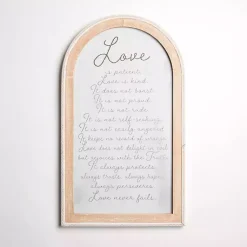 Love
is patient.
Love is kind.
It does not boast.
It is not proud.
It is not rude.
It is not self-seeking.
It is not easily angered.
It keeps no record of wrongs.
Love does not delight in evil
but rejoices with the Truth.
It always protects,
always trusts, always hopes,
always perseveres.
Love never fails.